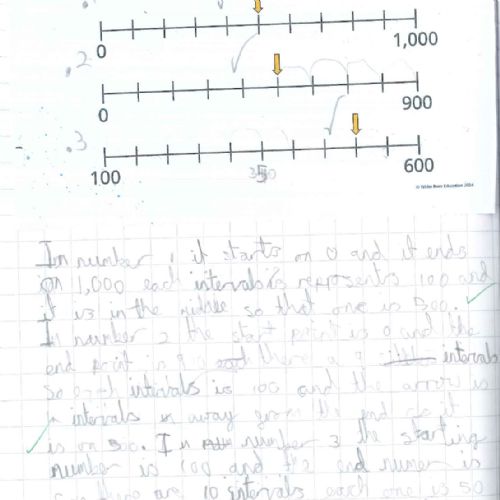 0
1,000
.2
0
900
.3
100
600
© White Rose Education 2024
In number 1 it starts on 0 and it ends
on 1,000 each intervals is represents 100 and
it is in the middle so that one is 500.
In number 2 the start point is 0 and the
end point is there 9 intervals
So each intervals is 100 and the arrow is
intervals away from the end so it
is on 500. In number 3 the starting
number is 100 and the end number is
there are 10 intervals each one is 50